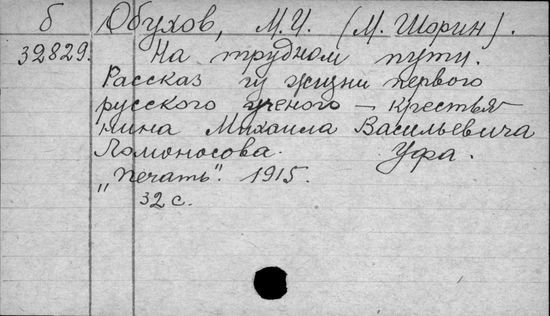 б Обухов, М.И. (М. Шорин).
32829. На трудном пути.
Рассказ из жизни первого
русского ученого – крестья-
нина Михаила Васильевича
Ломоносова. Уфа.
„Печать". 1915.
32 с.